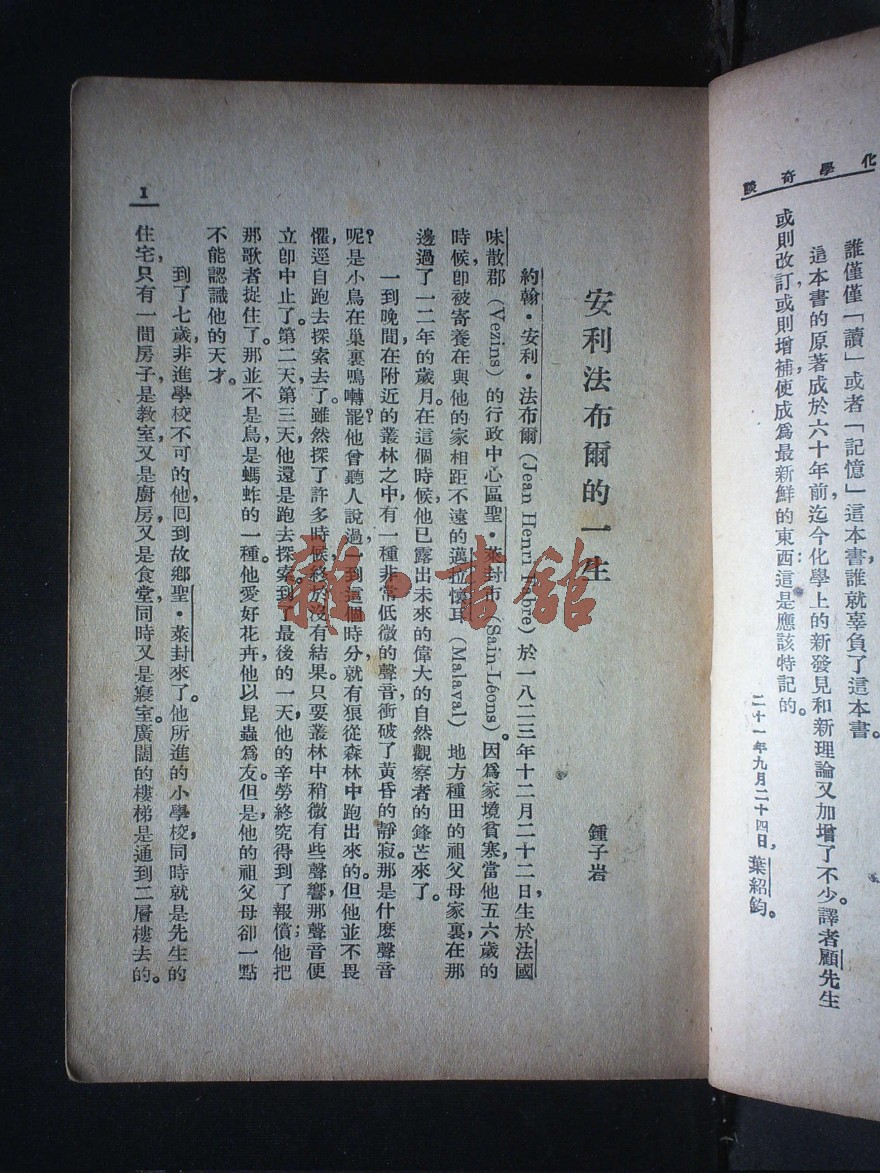 化學奇談
誰僅僅「讀」或者「記憶」這本書，誰就辜負了這本書。
這本書的原著成於六十年前，迄今化學上的新發見和新理論又加增了不少，譯者顧先生
或則改訂，或則增補，使成爲最新鮮的東西：這是應該特記的。
二十一年九月二十四日，葉紹鈞。
安利法布爾的一生
鍾子岩
約翰·安利·法布爾（Jean Henri Fabre）於一八二三年十二月二十二日，生於法國
味散郡（Vezins）的行政中心區聖·萊封市（Sain-Léons）。因爲家境貧寒，當他五六歲的
時候，卽被寄養在與他的家相距不遠的邁拉懷耳（Malaval）地方種田的祖父母家裏，在那
邊過了一二年的歲月。在這個時候，他已露出未來的偉大的自然觀察者的鋒芒來了。
一到晚間，在附近的叢林之中，有一種非常低微的聲音，衝破了黃昏的靜寂。那是什麽聲音
呢？是小鳥在巢裏鳴囀罷？他曾聽人說過，一到這個時分，就有狼從森林中跑出來的。但他並不畏
懼，逕自跑去探索去了。雖然探了許多時候，終於沒有結果。只要叢林中稍微有些聲響，那聲音便
立卽中止了。第二天，第三天，他還是跑去探索。到了最後的一天，他的辛勞終究得到了報償；他把
那歌者捉住了。那並不是鳥，是螞蚱的一種。他愛好花卉，他以昆蟲爲友。但是，他的祖父母卻一點
不能認識他的天才。
到了七歲，非進學校不可的他，囘到故鄉聖·萊封來了。他所進的小學校，同時就是先生的
住宅，只有一間房子，是教室，又是廚房，又是食堂，同時又是寢室。廣闊的樓梯是通到二層樓去的。
1
雜·書館